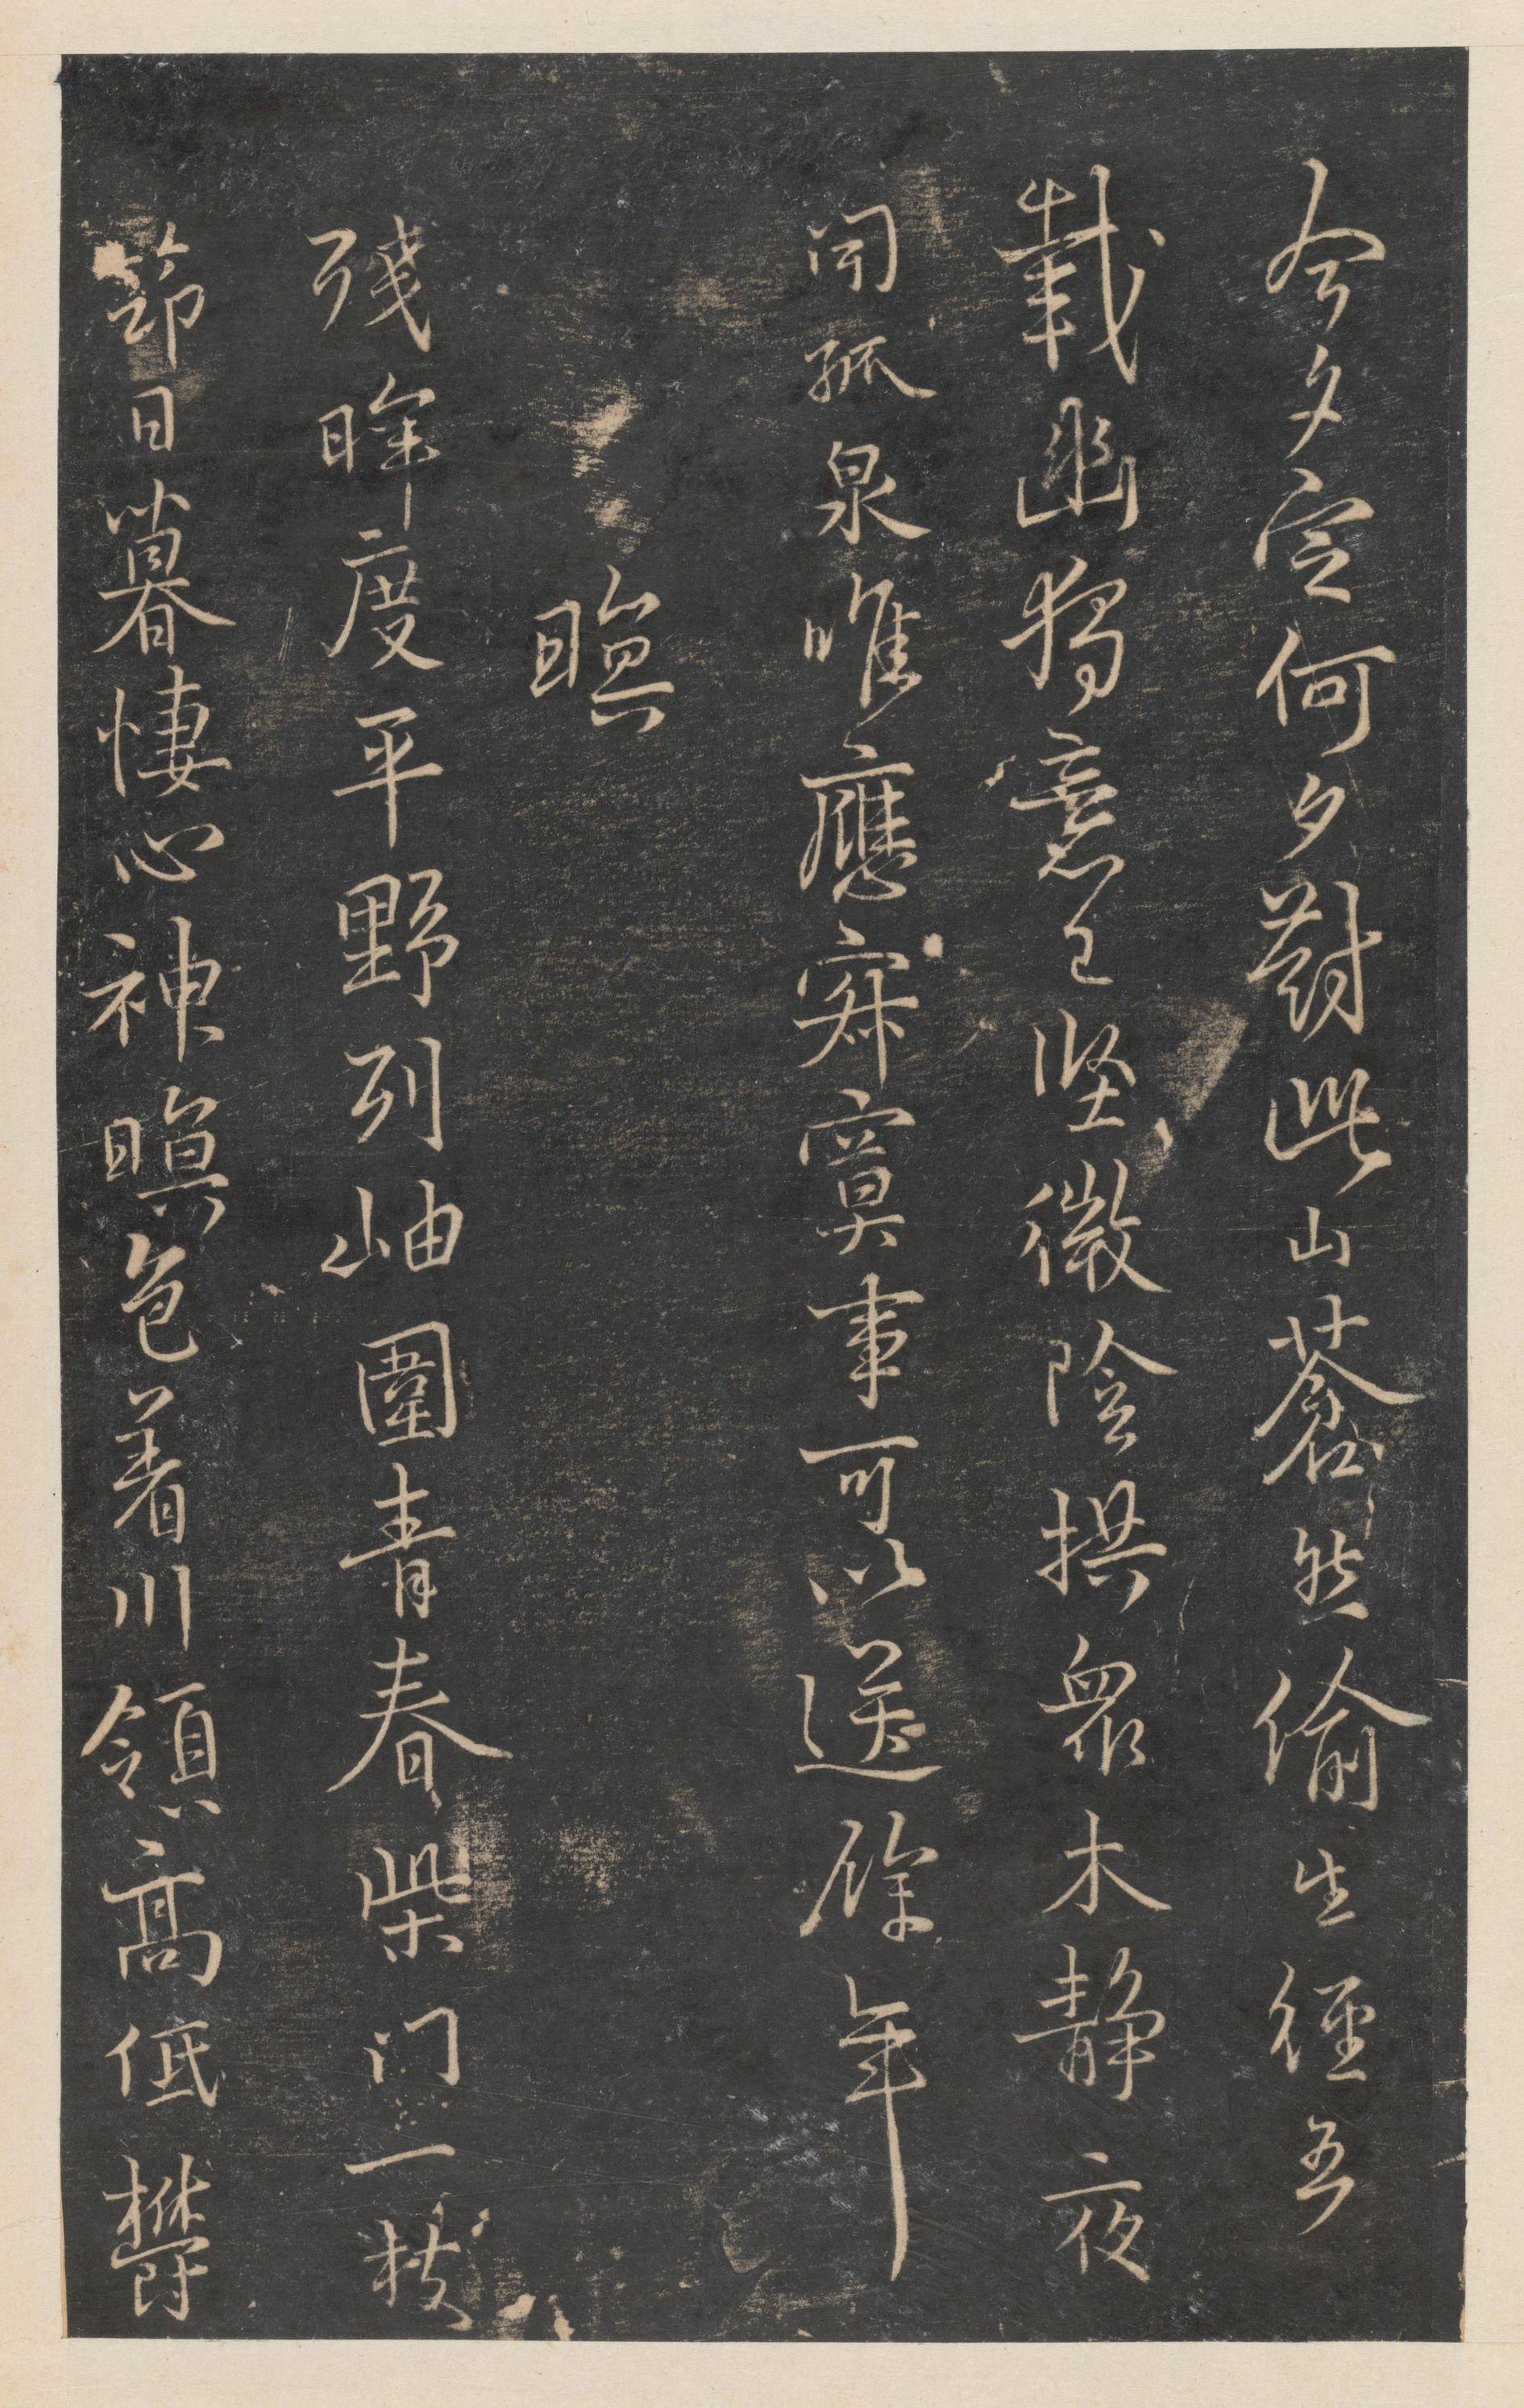 今夕定何夕對此山蒼然偷生經五
載幽獨意已堅微陰拱眾木靜夜
聞孤泉唯應寂寞事可以送餘年
暝
殘暉度平野列岫圍青春柴門一枝
筇日暮悽心神暝色着川嶺高低鬱